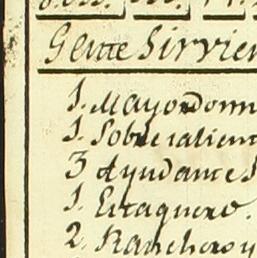 Gente Sirvien
1. Mayordom
1. Sobresalient
3 Ayudantes
1. Estaquero.
2. Rancheros y